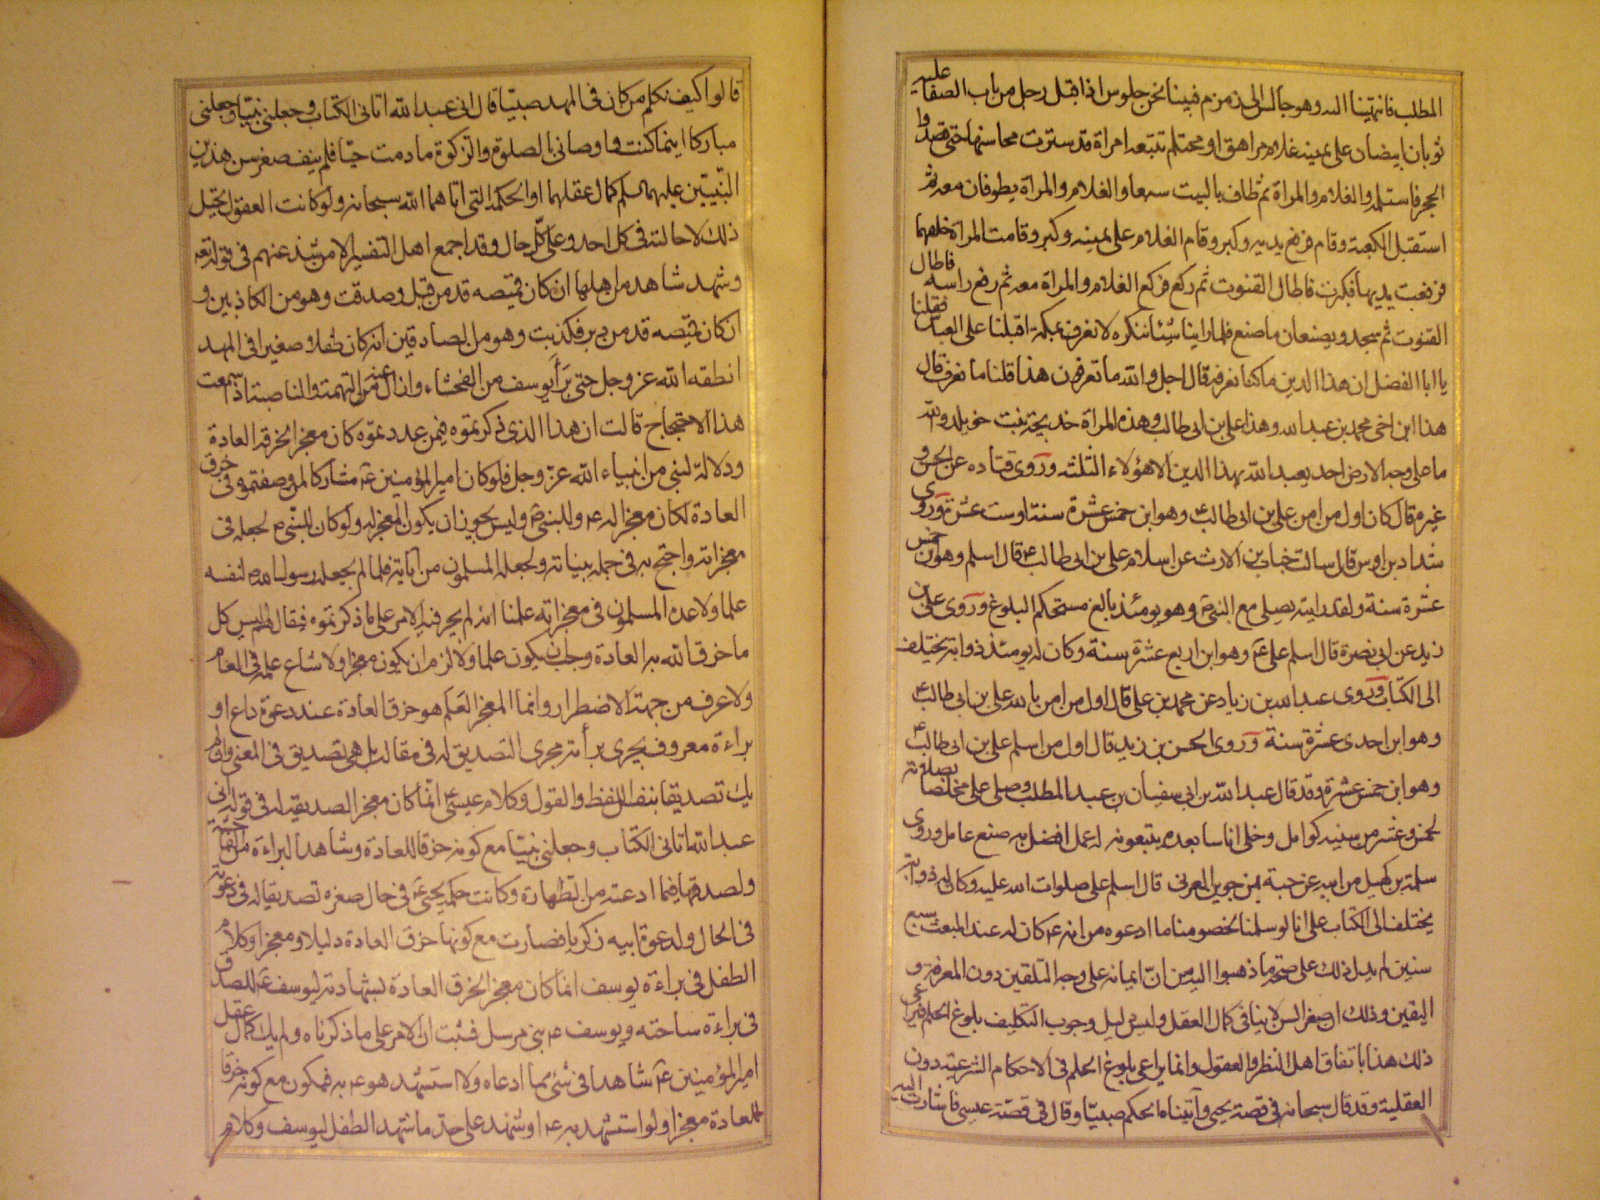 المطلب فانتهينا اليه وهو جالس الى زمزم فبينا نحن جلوس اذ اقبل رجل من باب الصفا عليه
ثوبان ابيضان على يمينه غلام مراهق او محتلم تتبعه امراة قد سترت محاسنها حتى قصدوا
الحجر فاستلمه والغلام والمراة ثم طاف بالبيت سبعا والغلام والمراة يطوفان معه ثم
استقبل الكعبة وقام فرفع يديه وكبر وقام الغلام على يمينه وكبر وقامت المراة خلفهما
فرفعت يديها فكبرت فاطال القنوت ثم ركع فركع الغلام والمراة معه ثم رفع راسه فاطال
القنوت ثم سجد ويصنعان ما صنع فلما راينا شيئا ننكره لا نعرف بمكة اقبلنا على العباس فقلنا
يا ابا الفضل ان هذا الدين ما كنا نعرفه قال اجل والله ما تعرفون هذا قلنا ما نعرف قال
هذا ابن اخي محمد بن عبد الله وهذا علي بن ابي طالب وهذه المراة خديجة بنت خويلد والله
ما على وجه الارض احد يعبد الله بهذا الدين الا هؤلاء الثلثه وروى قتاده عن الحسن و
غيره قال كان اول من امن علي بن ابي طالب ع وهو ابن خمس عشرة سنة او ست عشرة وروى
شداد بن اوس قال سالت خباب بن الارث عن اسلام علي بن ابي طالب ع قال اسلم وهو ابن خمس
عشرة سنة ولقد رايته يصلي مع النبي ص وهو يومئذ بالغ مستحكم البلوغ وروى علي بن
زيد عن ابي نضرة قال اسلم علي ع وهو ابن اربع عشرة سنة وكان له يومئذ ذوابة يختلف
الى الكتاب وروى عبد الله بن زياد عن محمد بن علي قال اول من امن بالله علي بن ابي طالب ع
وهو ابن احدى عشرة سنة وروى الحسن بن زيد قال اول من اسلم علي بن ابي طالب ع
وهو ابن خمس عشرة وقد قال عبد الله بن ابي سفيان بن عبد المطلب وصلى علي مخلصا بصلاته
لخمس وعشر من سنيه كوامل وخلى اناسا بعده يتبعونه له عمل افضل به صنع عامل وروى
سلمة بن كهيل عن ابيه عن حبة بن جوين العرني قال اسلم علي صلوات الله عليه وكان له ذوابة
يختلف الى الكتاب على انا لو سلمنا لخصومنا ما ادعوه من انه ع كان له عند المبعث سبع
سنين لم يدل ذلك على صحة ما ذهبوا اليه من ان ايمانه على وجه التلقين دون المعرفة و
اليقين وذلك ان صغر السن لا ينافي كمال العقل وليس دليل وجوب التكليف بلوغ الحلم فيراعى
ذلك هذا باتفاق اهل النظر والعقول وانما يراعى بلوغ الحلم في الاحكام الشرعية دون
العقلية وقد قال سبحانه في قصة يحيى وآتيناه الحكم صبيا وقال في قصة عيسى فاشارت اليه
قالوا كيف نكلم من كان في المهد صبيا قال اني عبد الله اتاني الكتاب وجعلني نبيا وجعلني
مباركا اينما كنت واوصاني بالصلوة والزكوة ما دمت حيا فلم ينف صغر سن هذين
النبيين عليهما السلم كمال عقلهما او الحكمة التي اتاهما الله سبحانه ولو كانت العقول تحيل
ذلك لاحالته في كل احد وعلى كل حال وقد اجمع اهل التفسير الا من شذ عنهم في قوله تعه
وشهد شاهد من اهلها ان كان قميصه قد من قبل وصدقت وهو من الكاذبين و
ان كان قميصه قد من دبر فكذبت وهو من الصادقين انه كان طفلا صغيرا في المهد
انطقه الله عز وجل حتى برأ يوسف من الفحشاء وازال عنه التهمة والناصبة اذا سمعت
هذا الاحتجاج قالت ان هذا الذي ذكرتموه فيمن عددتموه كان معجزا لخرقه العادة
ودلالة لنبي من انبياء الله عز وجل فلو كان امير المؤمنين ع مشاركا لمن وصفتموه في خرق
العادة لكان معجزا له ع وللنبي ص وليس يجوز ان يكون المعجز له ولو كان للنبي ص لجعله في
معجزاته واحتج به في جملة بيناته ولجعله المسلمون من آياته فلما لم يجعله رسول الله ص لنفسه
علما ولا عده المسلمون في معجزاته علمنا انه لم يجر فيه الامر على ما ذكرتموه فيقال لهم ليس كل
ما خرق الله به العادة وجب ان يكون علما ولا لزم ان يكون معجزا ولا شاع علمه في العام
ولا عرف من جهة الاضطرار وانما المعجز العلم هو خرق العادة عند دعوة داع او
براءة معروف يجري براءته مجرى التصديق له في مقاله بل هي تصديق في المعنى وان لم
يك تصديقا بنفس اللفظ والقول وكلام عيسى ع انما كان معجزا لتصديقه له في قوله اني
عبد الله اتاني الكتاب وجعلني نبيا مع كونه خرقا للعادة وشاهدا لبراءة امه من الفاحشة
ولصدقها فيما ادعته من الطهارة وكانت حكمة يحيى ع في حال صغره تصديقا له في دعوته
في الحال ولدعوة ابيه زكريا فصارت مع كونها خرق العادة دليلا ومعجزا وكلام
الطفل في براءة يوسف انما كان معجزا لخرق العادة بشهادته ليوسف ع للصدق
في براءة ساحته ويوسف ع نبي مرسل فثبت ان الامر على ما ذكرناه ولم يك كمال عقل
امير المؤمنين ع شاهدا في شئ مما ادعاه ولا استشهد هو ع به فيكون مع كونه خرقا
للعادة معجزا ولو استشهد به ع او شهد على حد ما شهد الطفل ليوسف وكلام